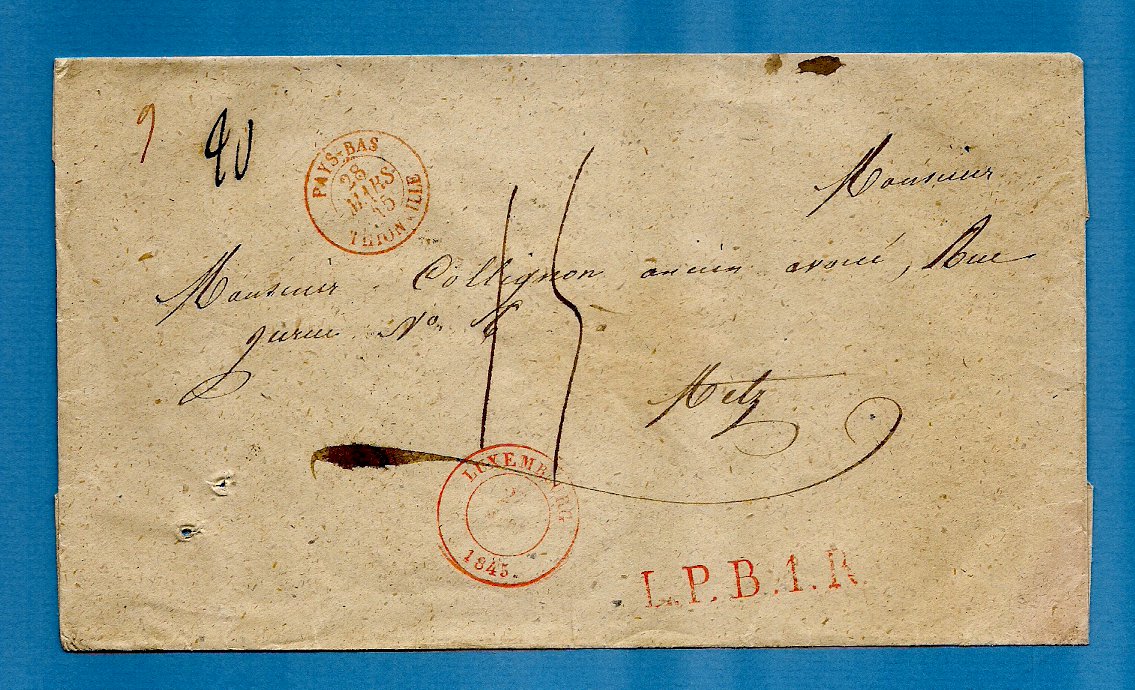 9
40
PAYS-BAS
28
MARS
45
THIONVILLE
Monsieur
Monsieur Collignon ancien avoué, Rue
No. 6
Metz
15
LUXEMBOURG
1845.
L.P.B.1.R.